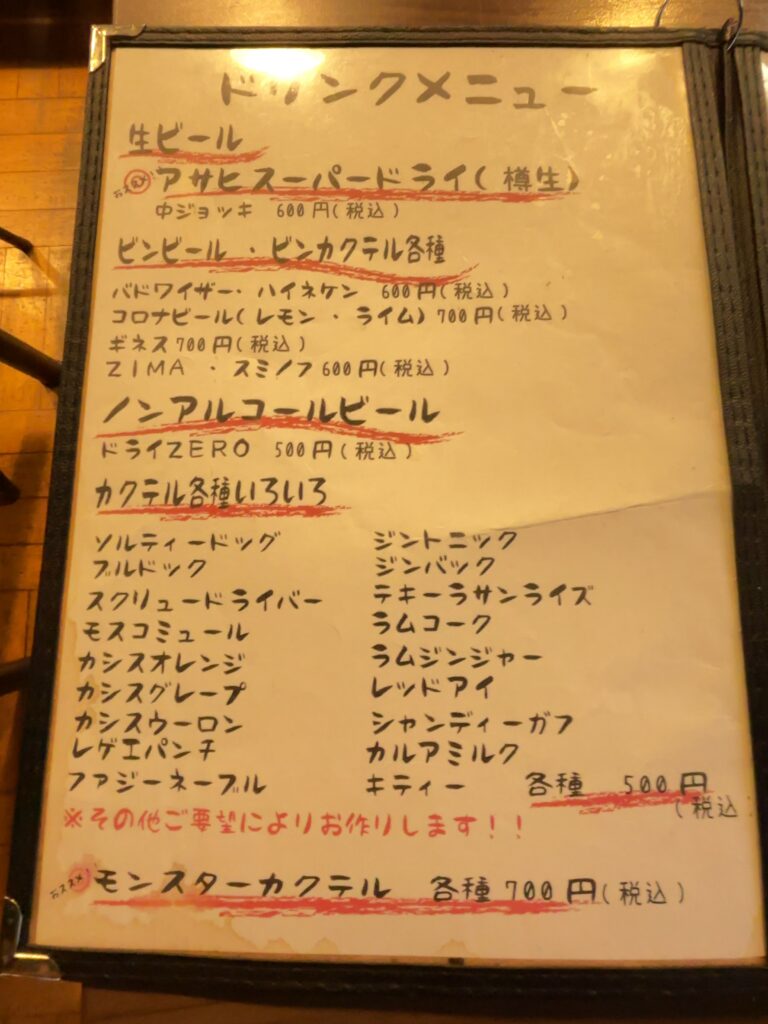 ドリンクメニュー
生ビール
おススメ! アサヒスーパードライ(樽生)
中ジョッキ 600円(税込)
ビンビール ・ビンカクテル各種
バドワイザー・ハイネケン 600円(税込)
コロナビール(レモン・ライム)700円(税込)
ギネス700円(税込)
ZIMA ・スミノフ600円(税込)
ノンアルコールビール
ドライZERO 500円(税込)
カクテル各種いろいろ
ソルティードッグ
ブルドック
スクリュードライバー
モスコミュール
カシスオレンジ
カシスグレープ
カシスウーロン
レゲエパンチ
ファジーネーブル
ジントニック
ジンバック
テキーラサンライズ
ラムコーク
ラムジンジャー
レッドアイ
シャンディーガフ
カルアミルク
キティー 各種 500円
(税込
※その他ご要望によりお作りします!!
おススメ! モンスターカクテル 各種700円(税込)